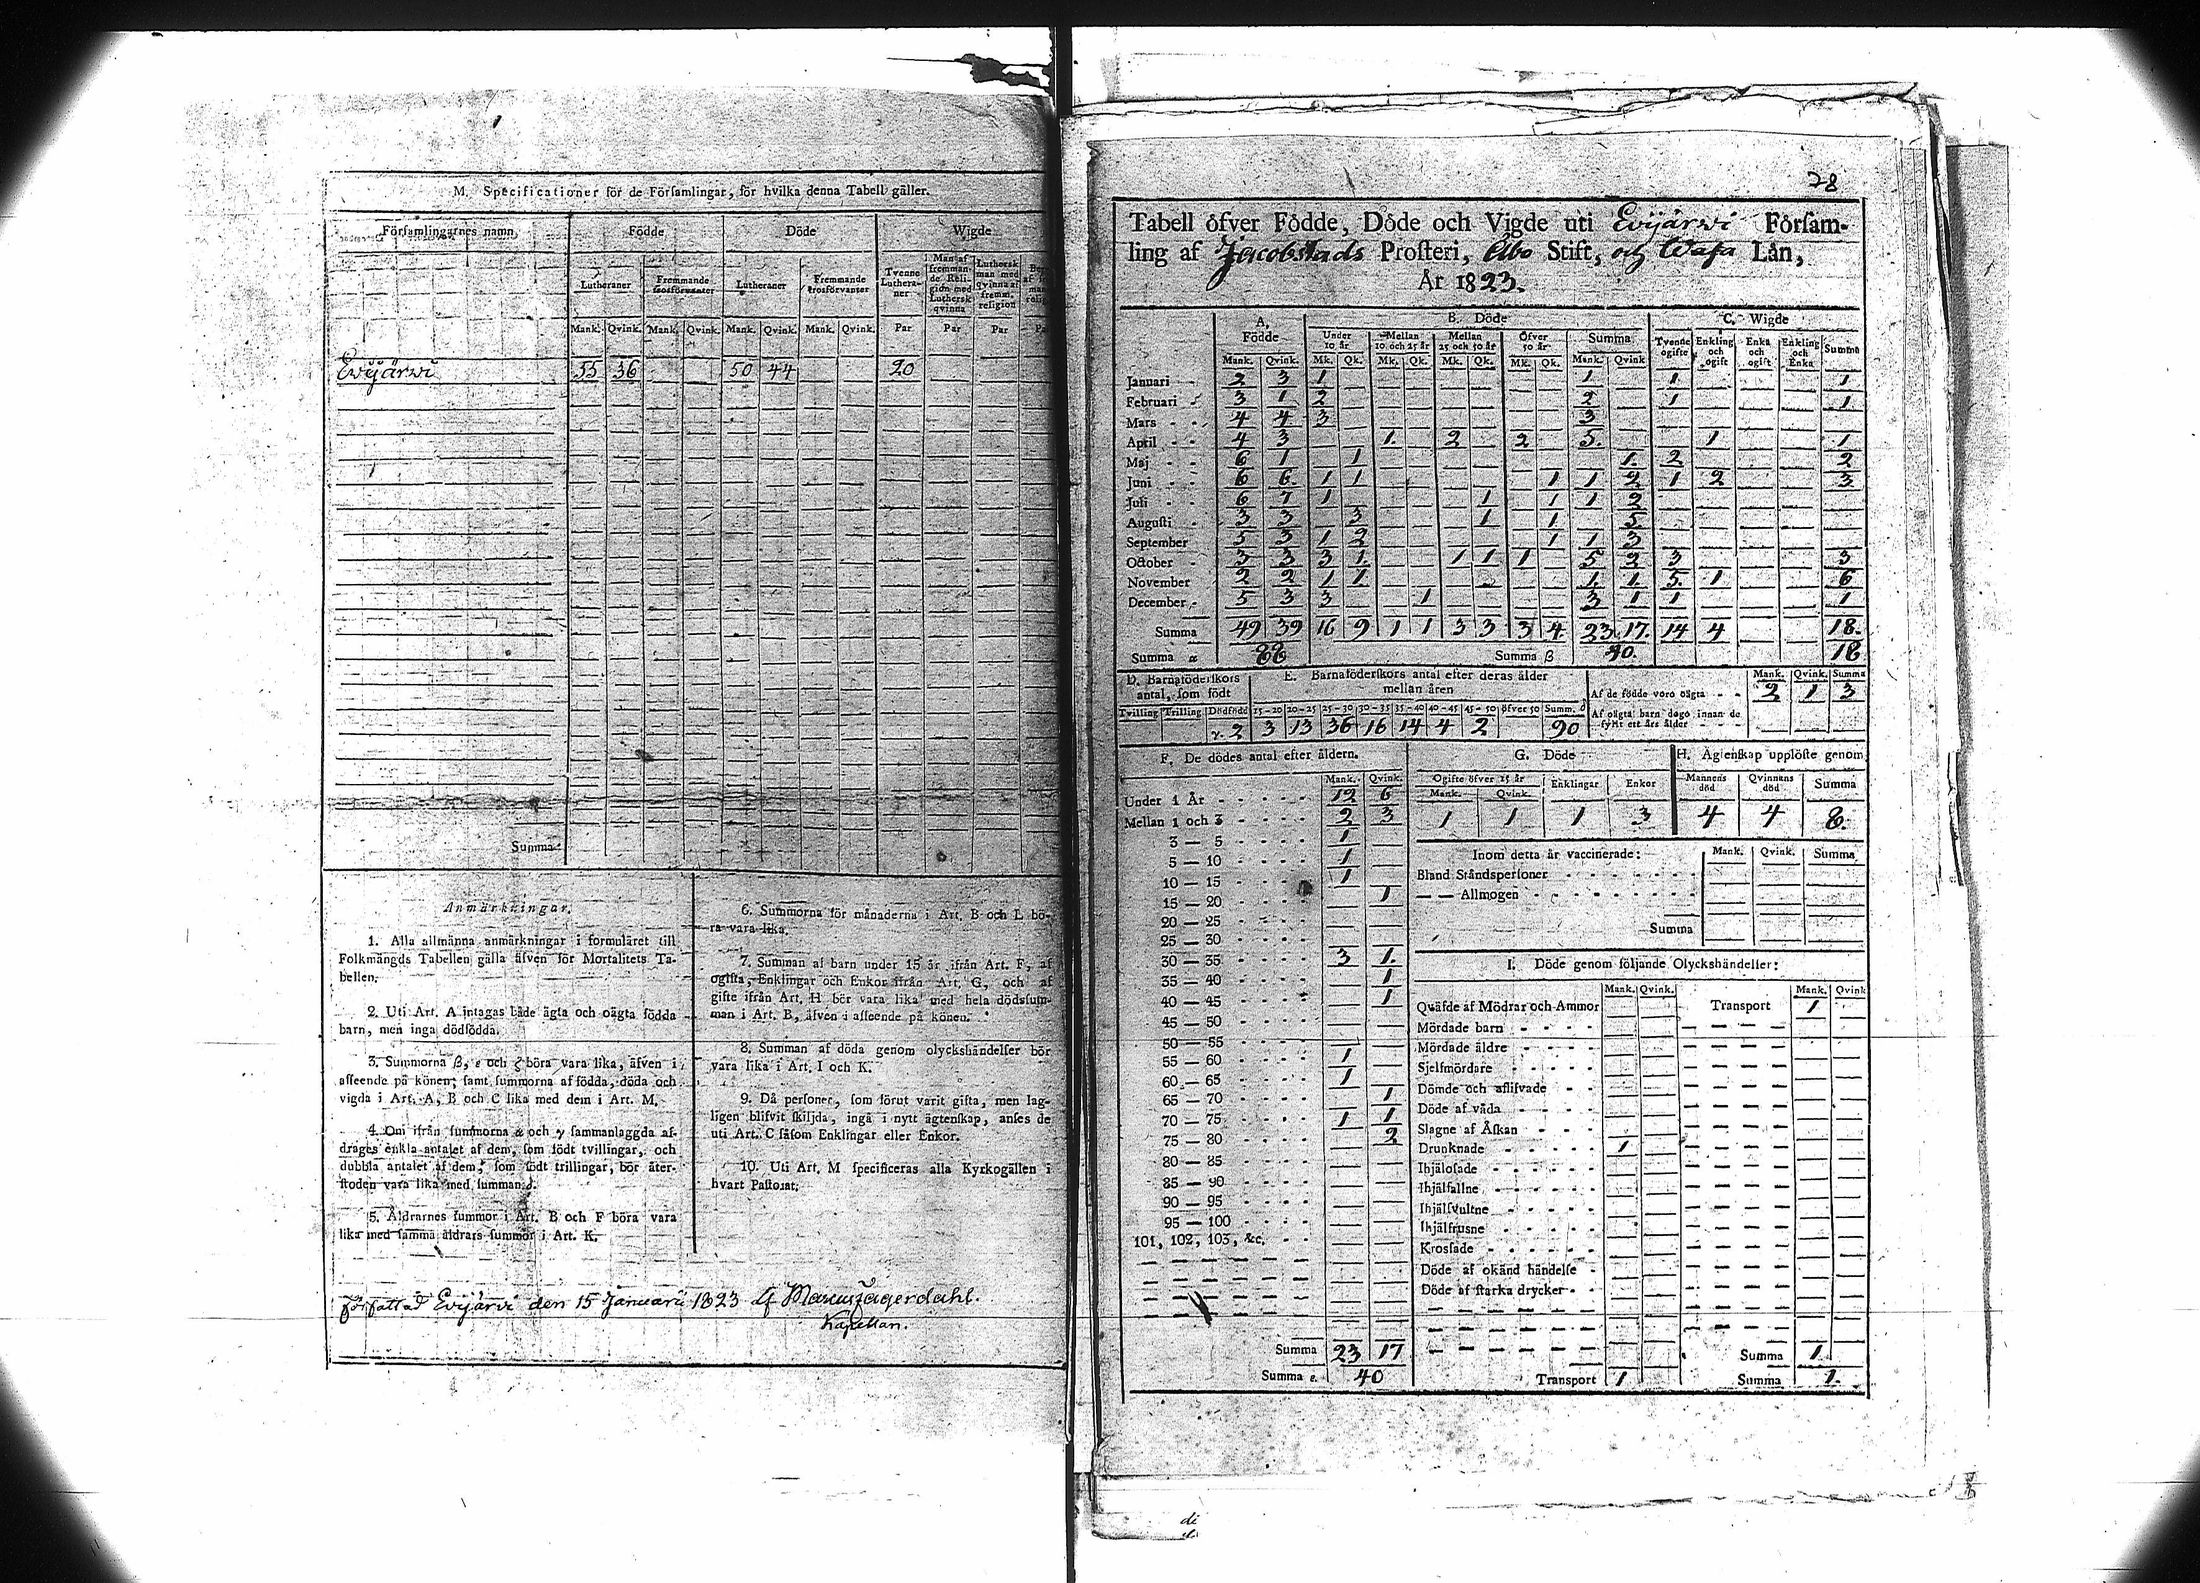 M. Specificationer för de Förſamlingar, för hvilka denna Tabell gäller.
Förſamlingarnes namn. Födde Döde Wigde
Lutheraner Fremmande trosförvanter Lutheraner Fremmande trosförvanter Tvenne Lutheraner Man af fremmande Religion med Lutherſk qvinna Lutherſk man med qvinna af fremm. religion
Mank. Qvink. Mank. Qvink. Mank. Qvink. Mank. Qvink. Par Par Par
Evijärvi 55 36 50 44 20
Summa
Anmärkningar.
1. Alla allmänna anmärkningar i formuläret till
Folkmängds Tabellen gälla äfven för Mortalitets Ta-
bellen.
2. Uti Art. A intagas både ägta och oägta födda
barn, men inga dödfödda.
3. Summorna β, ε och ζ böra vara lika, äfven i
affeende på könen; ſamt ſummorna af födda, döda och
vigda i Art. A, B och C lika med dem i Art. M.
4. Om ifrån ſummorna α och γ ſammanlaggda af-
drages enkla antalet af dem, ſom födt tvillingar, och
dubbla antalet af dem, ſom födt trillingar, bör åter-
ſtoden vara lika med ſumman δ.
5. Åldrarnes ſummor i Art. B och F böra vara
lika med ſamma åldrars ſummor i Art. K.
6. Summorna för månaderna i Art. B och L bö-
ra vara lika.
7. Summan af barn under 15 år ifrån Art. F, af
ogifta, Enklingar och Enkor ifrån Art. G, och af
gifte ifrån Art. H bör vara lika med hela dödsſum-
man i Art. B, äfven i affeende på könen.
8. Summan af döda genom olyckshändelſer bör
vara lika i Art. I och K.
9. Då perſoner, ſom förut varit gifta, men lag-
ligen blifvit ſkiljda, ingå i nytt ägtenſkap, anſes de
uti Art. C ſåſom Enklingar eller Enkor.
10. Uti Art. M ſpecificeras alla Kyrkogällen i
hvart Paſtorat.
Författad Evijärvi den 15 Januarii 1823 af Marcus Jägerdahl.
Kapellan.
28
Tabell öfver Födde, Döde och Vigde uti Evijärvi Förſam-
ling af Jacobstads Proſteri, Åbo Stift, og Waſa Län,
År 1823.
A. Födde B. Döde C. Wigde
Under 10 år Mellan 10 och 25 år Mellan 25 och 50 år Öfver 50 år Summa Tvenne ogifte Enkling och ogift Enka och ogift Enkling och Enka Summa
Mank. Qvink. Mk. Qk. Mk. Qk. Mk. Qk. Mk. Qk. Mank. Qvink
Januari 2 3 1 1 1 1
Februari 3 1 2 2 1 1
Mars 4 4 3 3
April 4 3 1 2 2 5 1 1
Maj 6 1 1 1 2 2
Juni 6 6 1 1 1 1 2 1 2 3
Juli 6 7 1 1 1 1 2
Auguſti 3 3 3 1 1 5
September 5 3 1 2 1 1 3
October 3 3 3 1 1 1 1 5 2 3 3
November 2 2 1 1 1 1 5 1 6
December 5 3 3 1 3 1 1 1
Summa 49 39 16 9 1 1 3 3 3 4 23 17 14 4 18
Summa α 88 Summa β 40 18
D. Barnaföderſkors antal, ſom födt E. Barnaföderſkors antal efter deras ålder mellan åren Mank. Qvink. Summa
Af de födde voro oägta 2 1 3
Af oägta barn dogo innan de fyllt ett års ålder
Tvilling Trilling Dödfödd 15-20 20-25 25-30 30-35 35-40 40-45 45-50 öfver 50 Summ. δ
γ. 2 3 13 36 16 14 4 2 90
F. De dödes antal efter åldern.
Mank. Qvink.
Under 1 År 12 6
Mellan 1 och 3 2 3
3 — 5 1
5 — 10 1
10 — 15 1
15 — 20 1
20 — 25
25 — 30
30 — 35 3 1
35 — 40 1
40 — 45 1
45 — 50
50 — 55
55 — 60 1
60 — 65 1
65 — 70 1
70 — 75 1 1
75 — 80 2
80 — 85
85 — 90
90 — 95
95 — 100
101, 102, 103, &c.
Summa 23 17
Summa ε. 40
G. Döde H. Ägtenſkap upplöſte genom
Ogifte öfver 15 år Enklingar Enkor Mannens död Qvinnans död Summa
Mank. Qvink.
1 1 1 3 4 4 8
Inom detta år vaccinerade: Mank. Qvink. Summa
Bland Ståndsperſoner
— — Allmogen
Summa
I. Döde genom följande Olyckshändelſer:
Mank. Qvink. Mank. Qvink
Qväfde af Mödrar och Ammor Transport 1
Mördade barn
Mördade äldre
Sjelfmördare
Dömde och aflifvade
Döde af våda
Slagne af Åſkan
Drunknade 1
Ihjäloſade
Ihjälfallne
Ihjälſvultne
Ihjälfrusne
Krosſade
Döde af okänd händelſe
Döde af ſtarka drycker
Summa 1
Transport 1 Summa 1